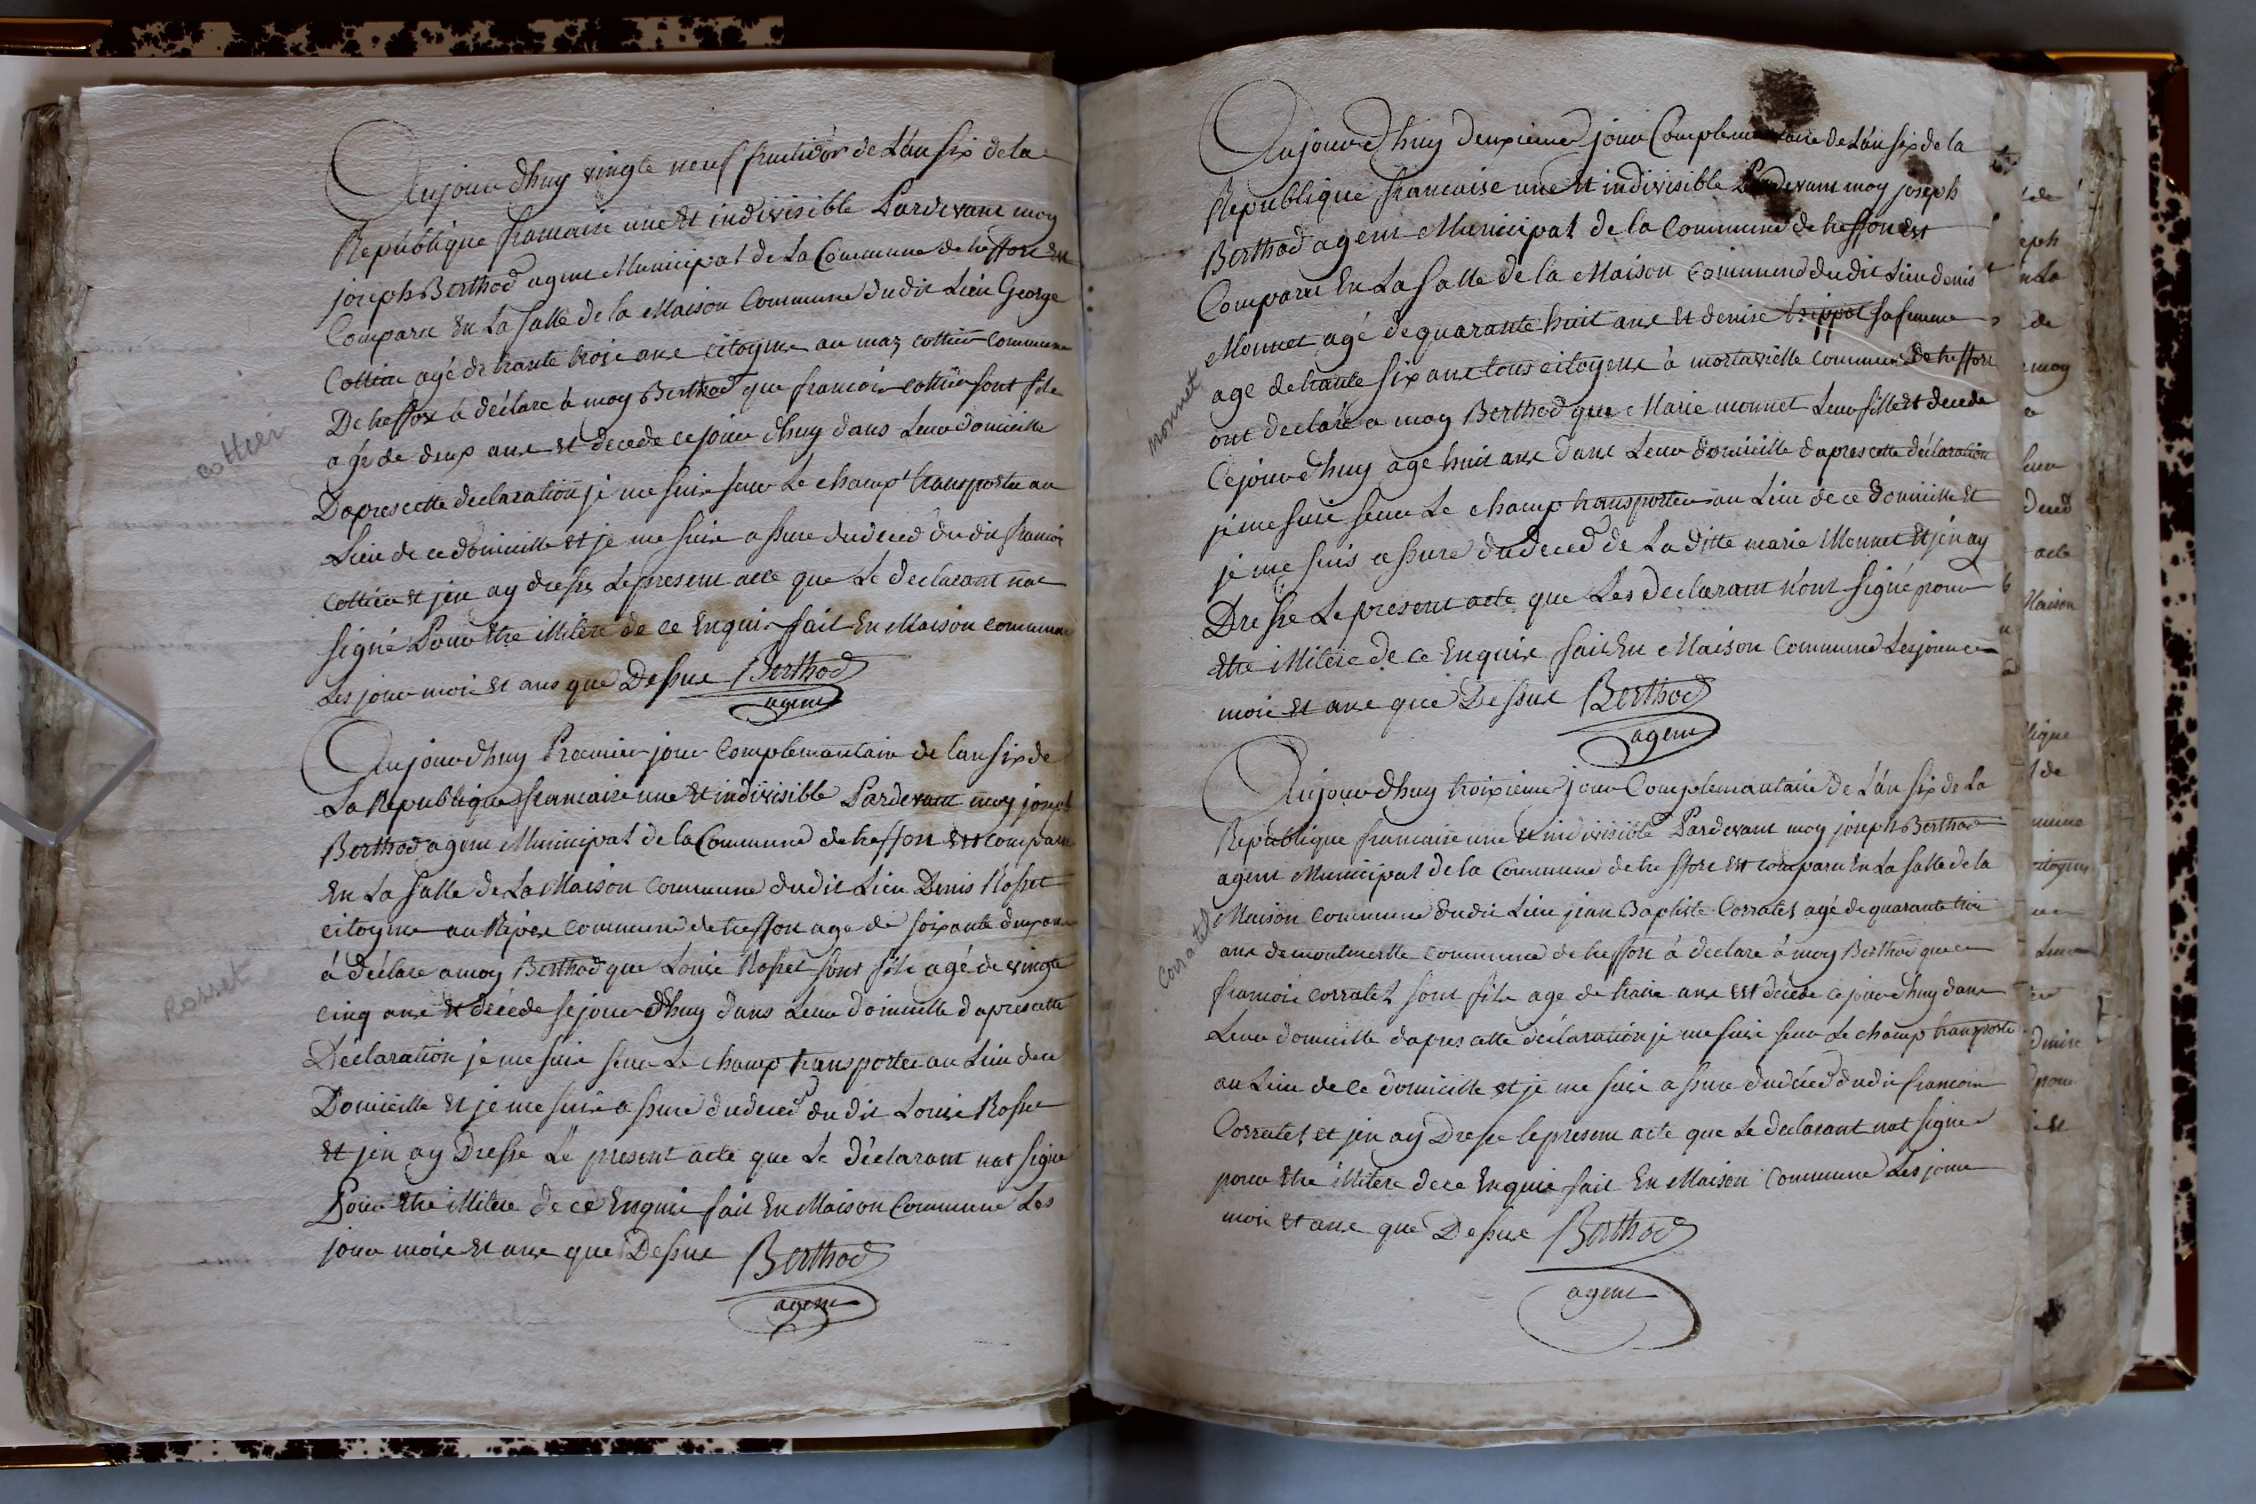 Aujourdhuy vingte neuf fructidor de Lan six de la
Republique francaise une et indivisible Pardevant moy
joseph Berthod agent Municipal de La Commune de treffort est
Comparu En La Salle de la Maison Commune dudit Lieu George
Cottier agé de trante trois ans citoyene au maz cottier commune
De treffort à déclaré à moy Berthod que francois cottier sont fils
agé de deux ans et decede cejour dhuy dans Leur domicille
Dapres cette declaration je me suis seur Le champ transporter au
Lieu de ce domicille et je me suis assure dudeced dudit francois
cottier et jen ay dresse Le present acte que Le declarant nat
signé Pour Etre Mitere de ce Enquis fait En Maison commune
Les jour mois et ans que Dessus Berthod
agent
cottier
Aujourdhuy Premier jour complemantaire de lan six de
La Republique francaise une et indivisible Pardevant moy joseph
Berthod agent Municipal de la Commune de treffort est comparu
En La Salle de La Maison commune dudit Lieu Denis Rosset
citoyene au commune de treffort age de soixante deux ans
à déclare a moy Berthod que Louis Rosset sont fils agé de vingte
cinq ans et décéde sejour dhuy dans Leur domicille dapres cette
Déclaration je me suis seur Le champ transporter au Lieu de ce
Domicille et je me suis assure dudeced dudit Louis Rosset
et jen ay Dresse Le present acte que Le déclarant nat signé
Pour Etre Mitere de ce Enquis fait En Maison Commune Les
jour mois et ans que Dessus Berthod
agent
Rosset
Aujourdhuy deuxieme jour Complemantaire de Lan six de la
Republique francaise une et indivisible Pardevant moy joseph
Berthod agent Municipal de la Commune de treffort est
Comparu En La Salle de la Maison Commune dudit Lieu denis
Monnet agé de quarante huit ans et denise sa femme
age de trante six ans tous citoyens à commune de treffort
ont declaré a moy Berthod que Marie monnet Leur fille et decede
Cejour dhuy age huit ans dans Leur domicille dapres cette déclaration
je me suis seur Le champ transporter au Lieu de ce domicille et
je me suis assure dudeced de La ditte marie Monnet et jen ay
Dresse Le present acte que Les declarant n'ont signé pour
Etre Mitere de ce Enquis fait En Maison Commune Les jour
mois et ans que Dessus Berthod
agent
monnet
Aujourdhuy troixieme jour Complemantaire de Lan six de La
Republique francaise une et indivisible Pardevant moy joseph Berthod
agent Municipal de la Commune de treffort est comparu En La Salle de la
Maison Commune dudit Lieu jean Baptiste Corratet agé de quarante trois
ans de montmerle commune de treffort à declare à moy Berthod que
francois corratet sont fils age de traize ans est décéde ce jour dhuy dans
Leur domicille dapres cette déclaration je me suis seur Le champ transporte
au Lieu de ce domicille et je me suis assure dudeced dudit francois
Corratet et jen ay Dresse le present acte que Le declarant nat signe
pour Etre Mitere de ce Enquis fait En Maison Commune Les jour
mois et ans que Dessus Berthod
agent
Corratet